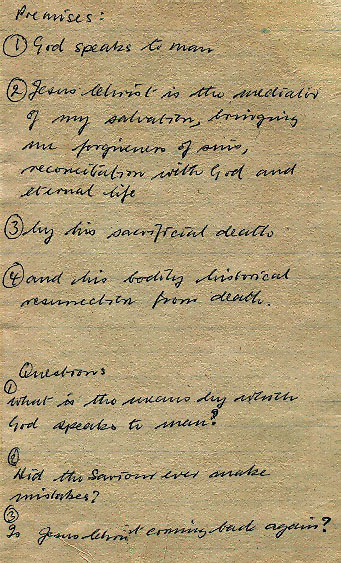 Premises:
① God speaks to man
② Jesus Christ is the mediator
of my salvation, bringing
me forgiveness of sins,
reconciliation with God and
eternal life
③ by his sacrificial death
④ and his bodily historical
resurrection from death.
Questions
①
What is the means by which
God speaks to man?
②
Did the Saviour ever make
mistakes?
③
Is Jesus Christ coming back again?